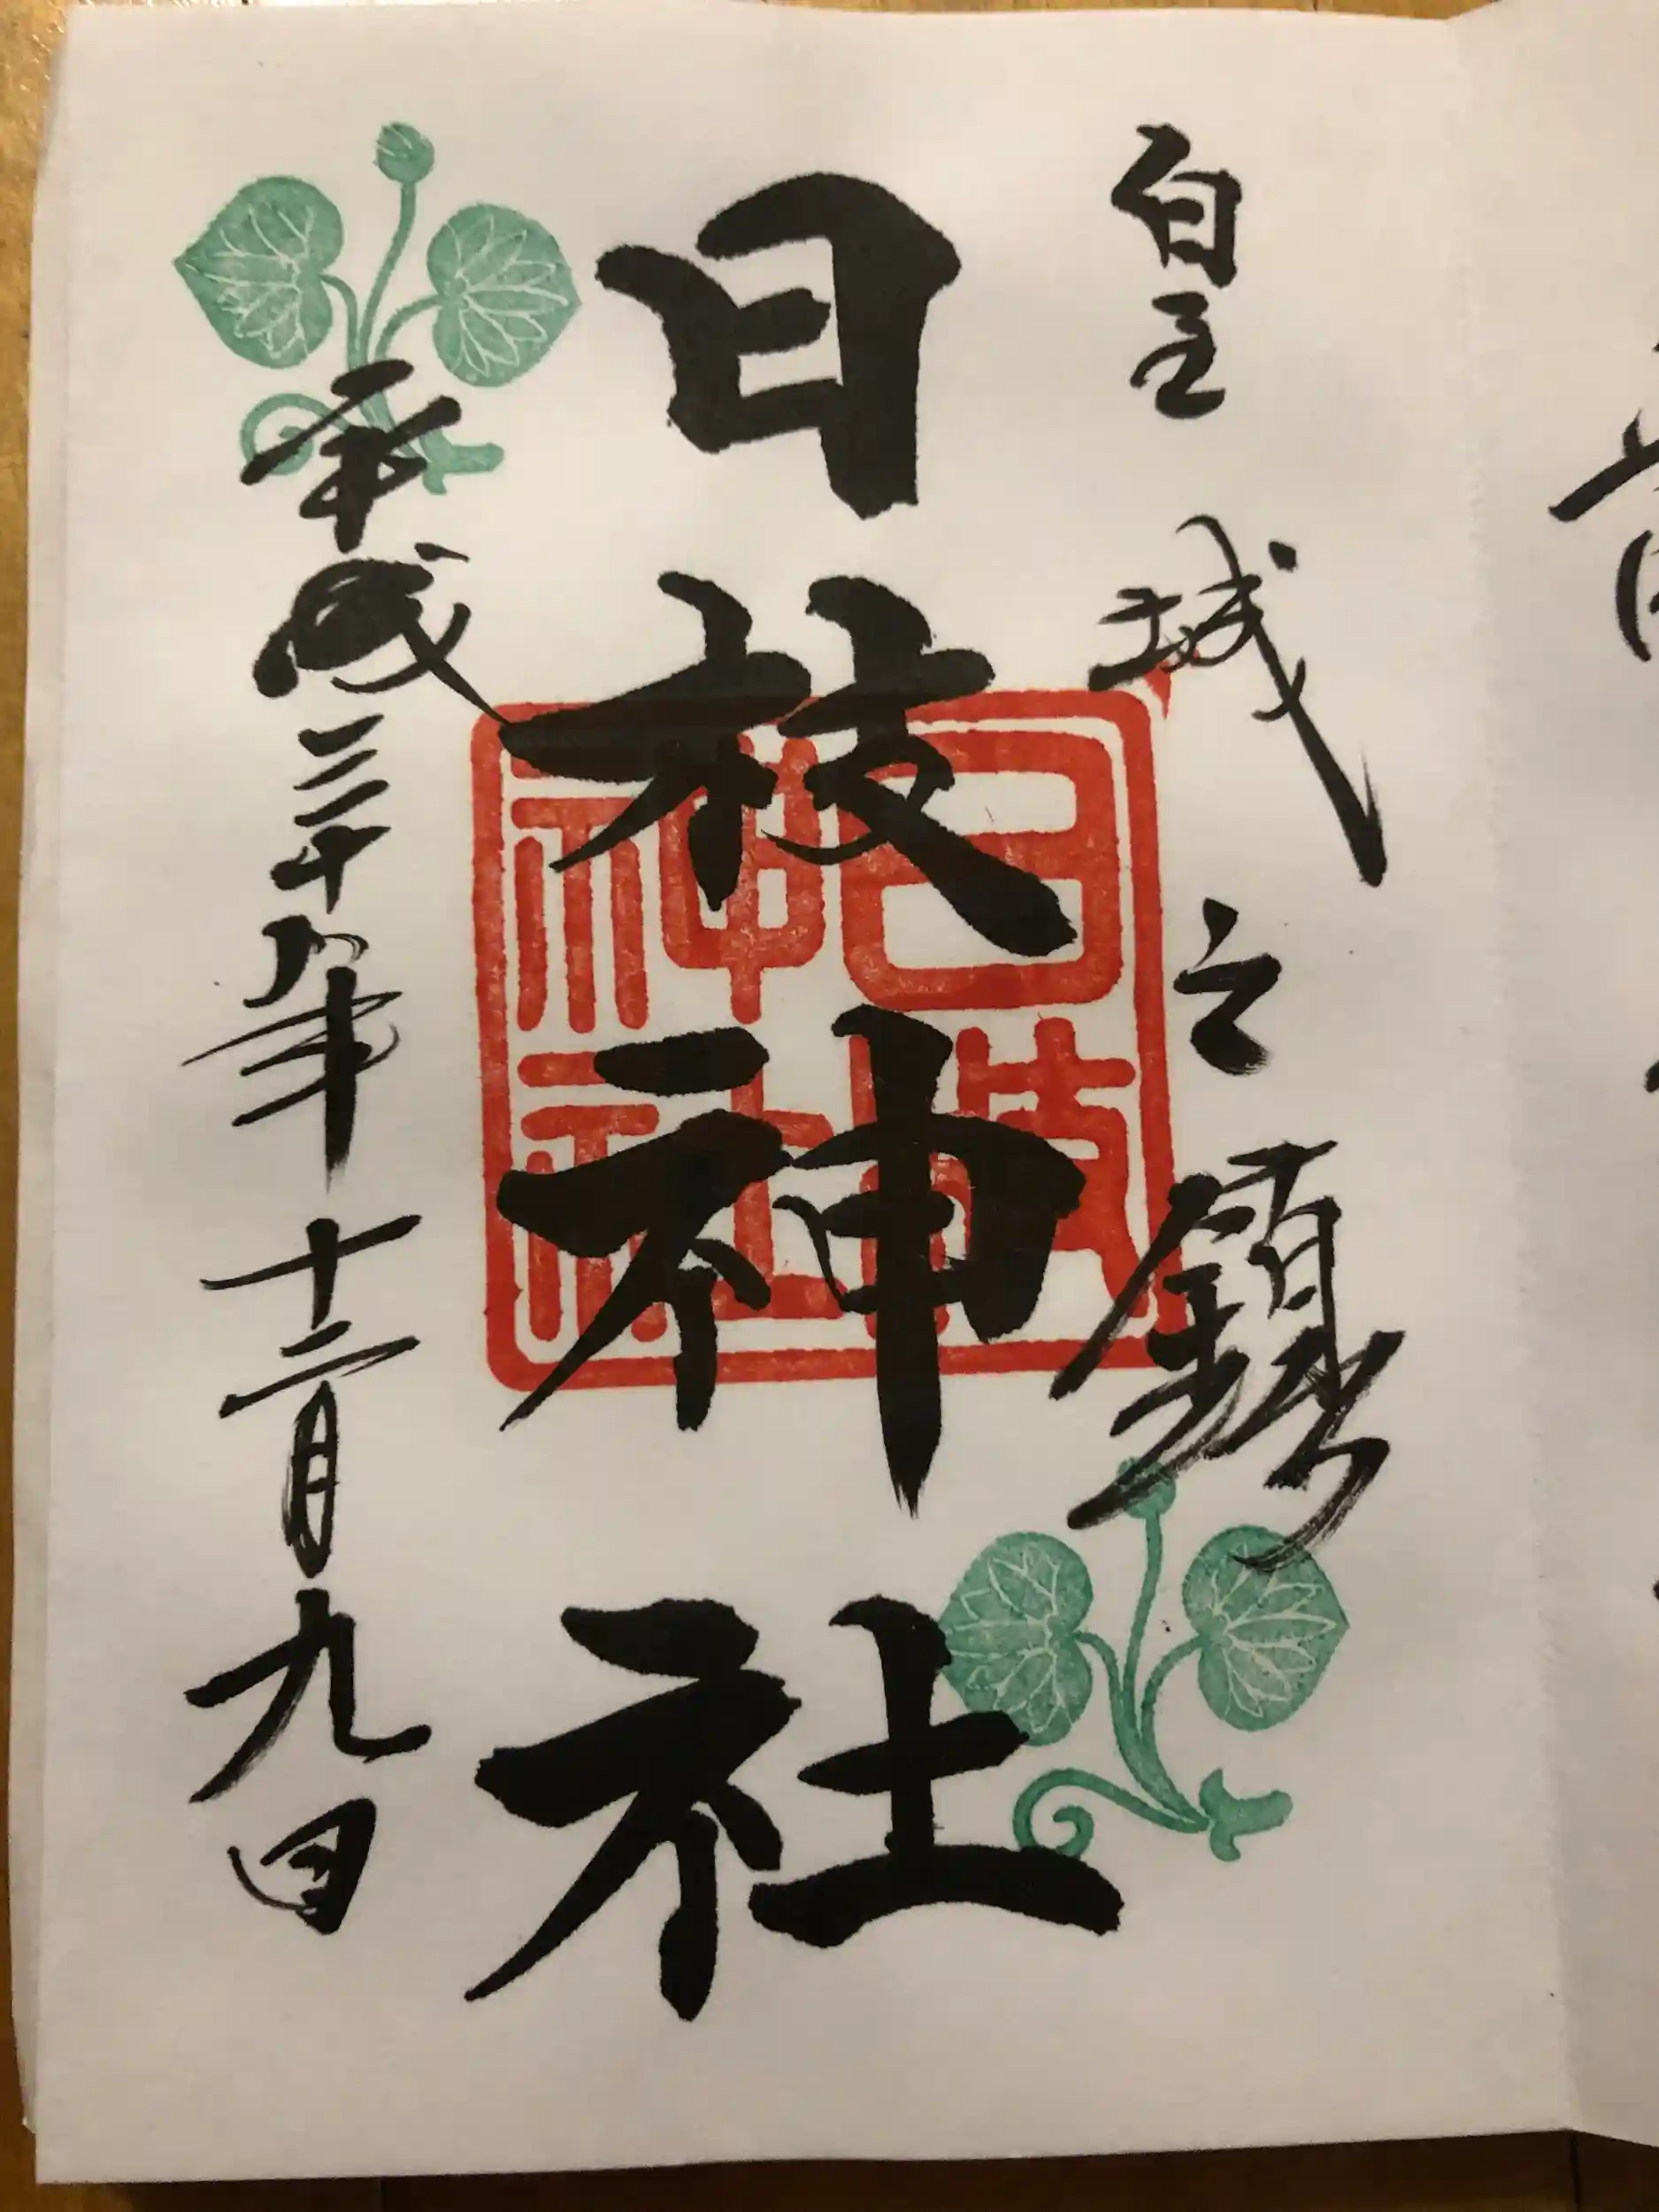 皇城之鎮
日枝神社
日枝神社
平成 年十二月九日